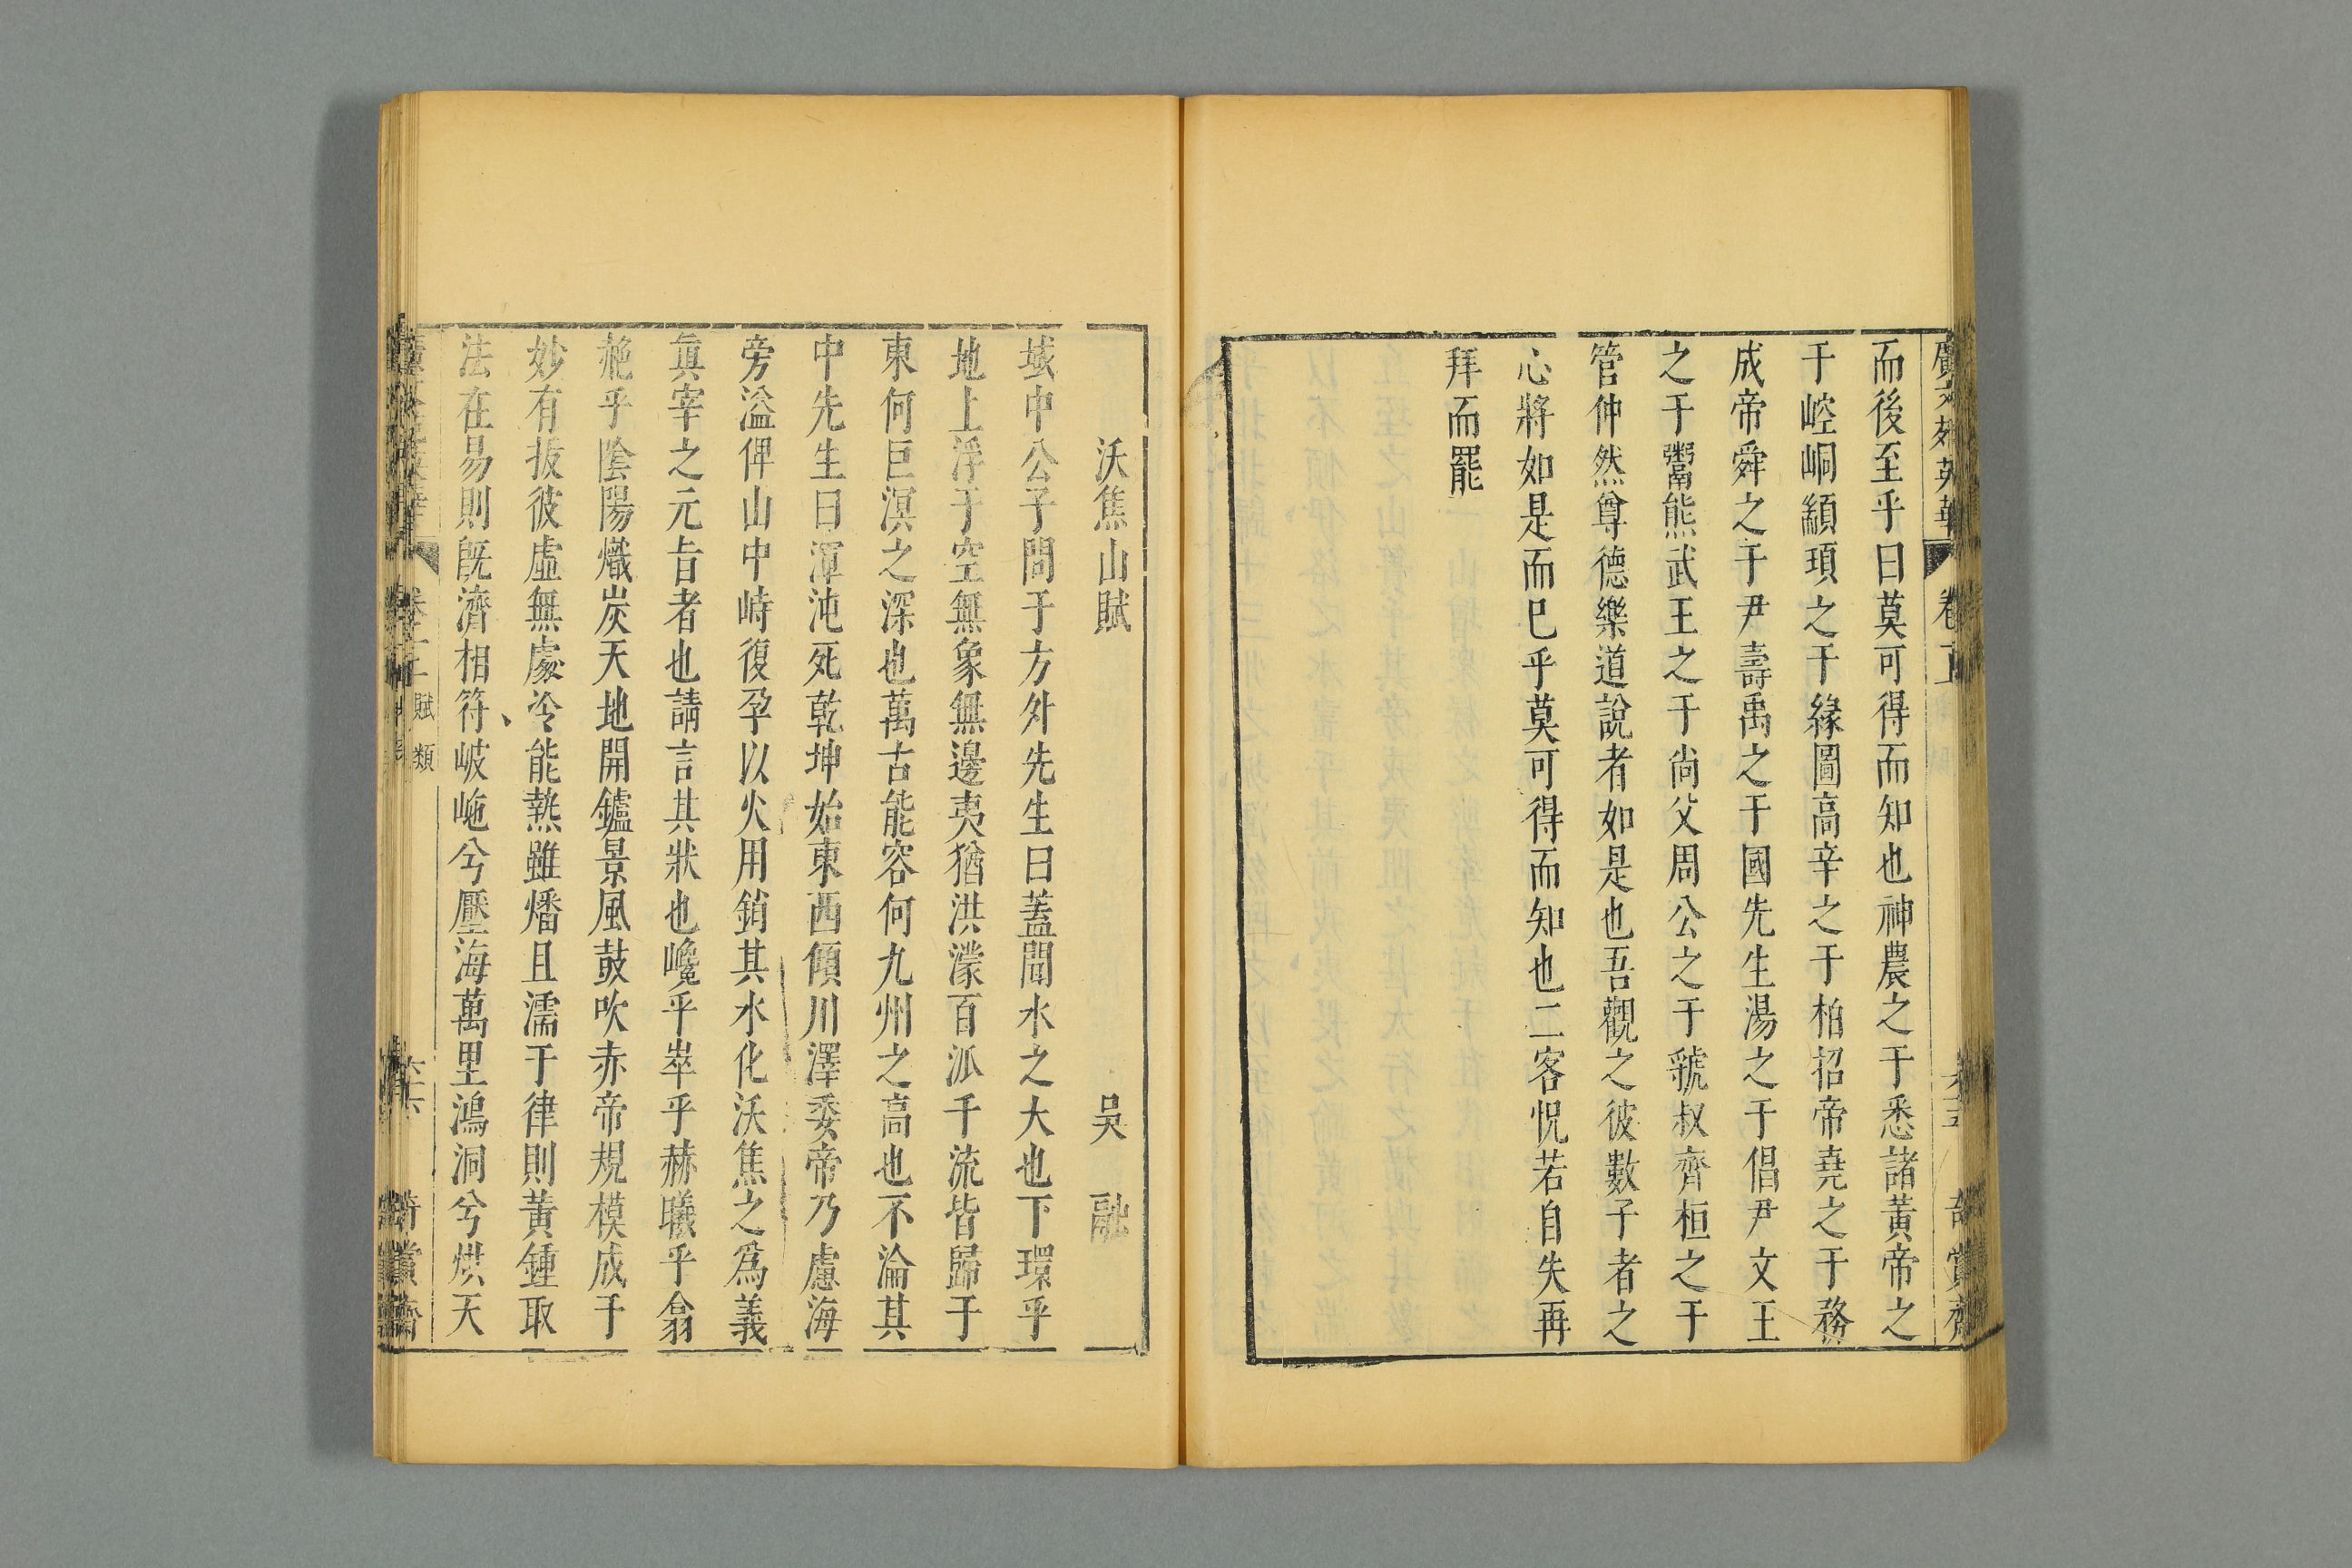 廣文苑英華 卷 奇賞齋
而後至乎曰莫可得而知也神農之于悉諸黃帝之
于崆峒顓頊之于緣圖高辛之于柏招帝堯之于務
成帝舜之于尹壽禹之于國先生湯之于倡尹文王
之于鬻熊武王之于尙父周公之于虢叔齊桓之于
管仲然尊德樂道說者如是也吾觀之彼數子者之
心將如是而巳乎莫可得而知也二客怳若自失再
拜而罷
沃焦山賦 吳融
域中公子問于方外先生曰蓋聞水之大也下環乎
地上浮于空無象無邊夷猶洪濛百泒千流皆歸于
東何巨溟之深也萬古能容何九州之高也不淪其
中先生曰渾沌死乾坤始東西傾川澤委帝乃慮海
旁溢俾山中峙復孕以火用銷其水化沃焦之爲義
眞宰之元㫖者也請言其狀也巉乎崒乎赫曦乎翕
赩乎陰陽熾炭天地開鑪景風鼓吹赤帝規模成于
妙有拔彼虛無處冷能熱雖燔且濡于律則黃鍾取
法在易則旣濟相符岐崺兮壓海萬里鴻洞兮烘天
賦類